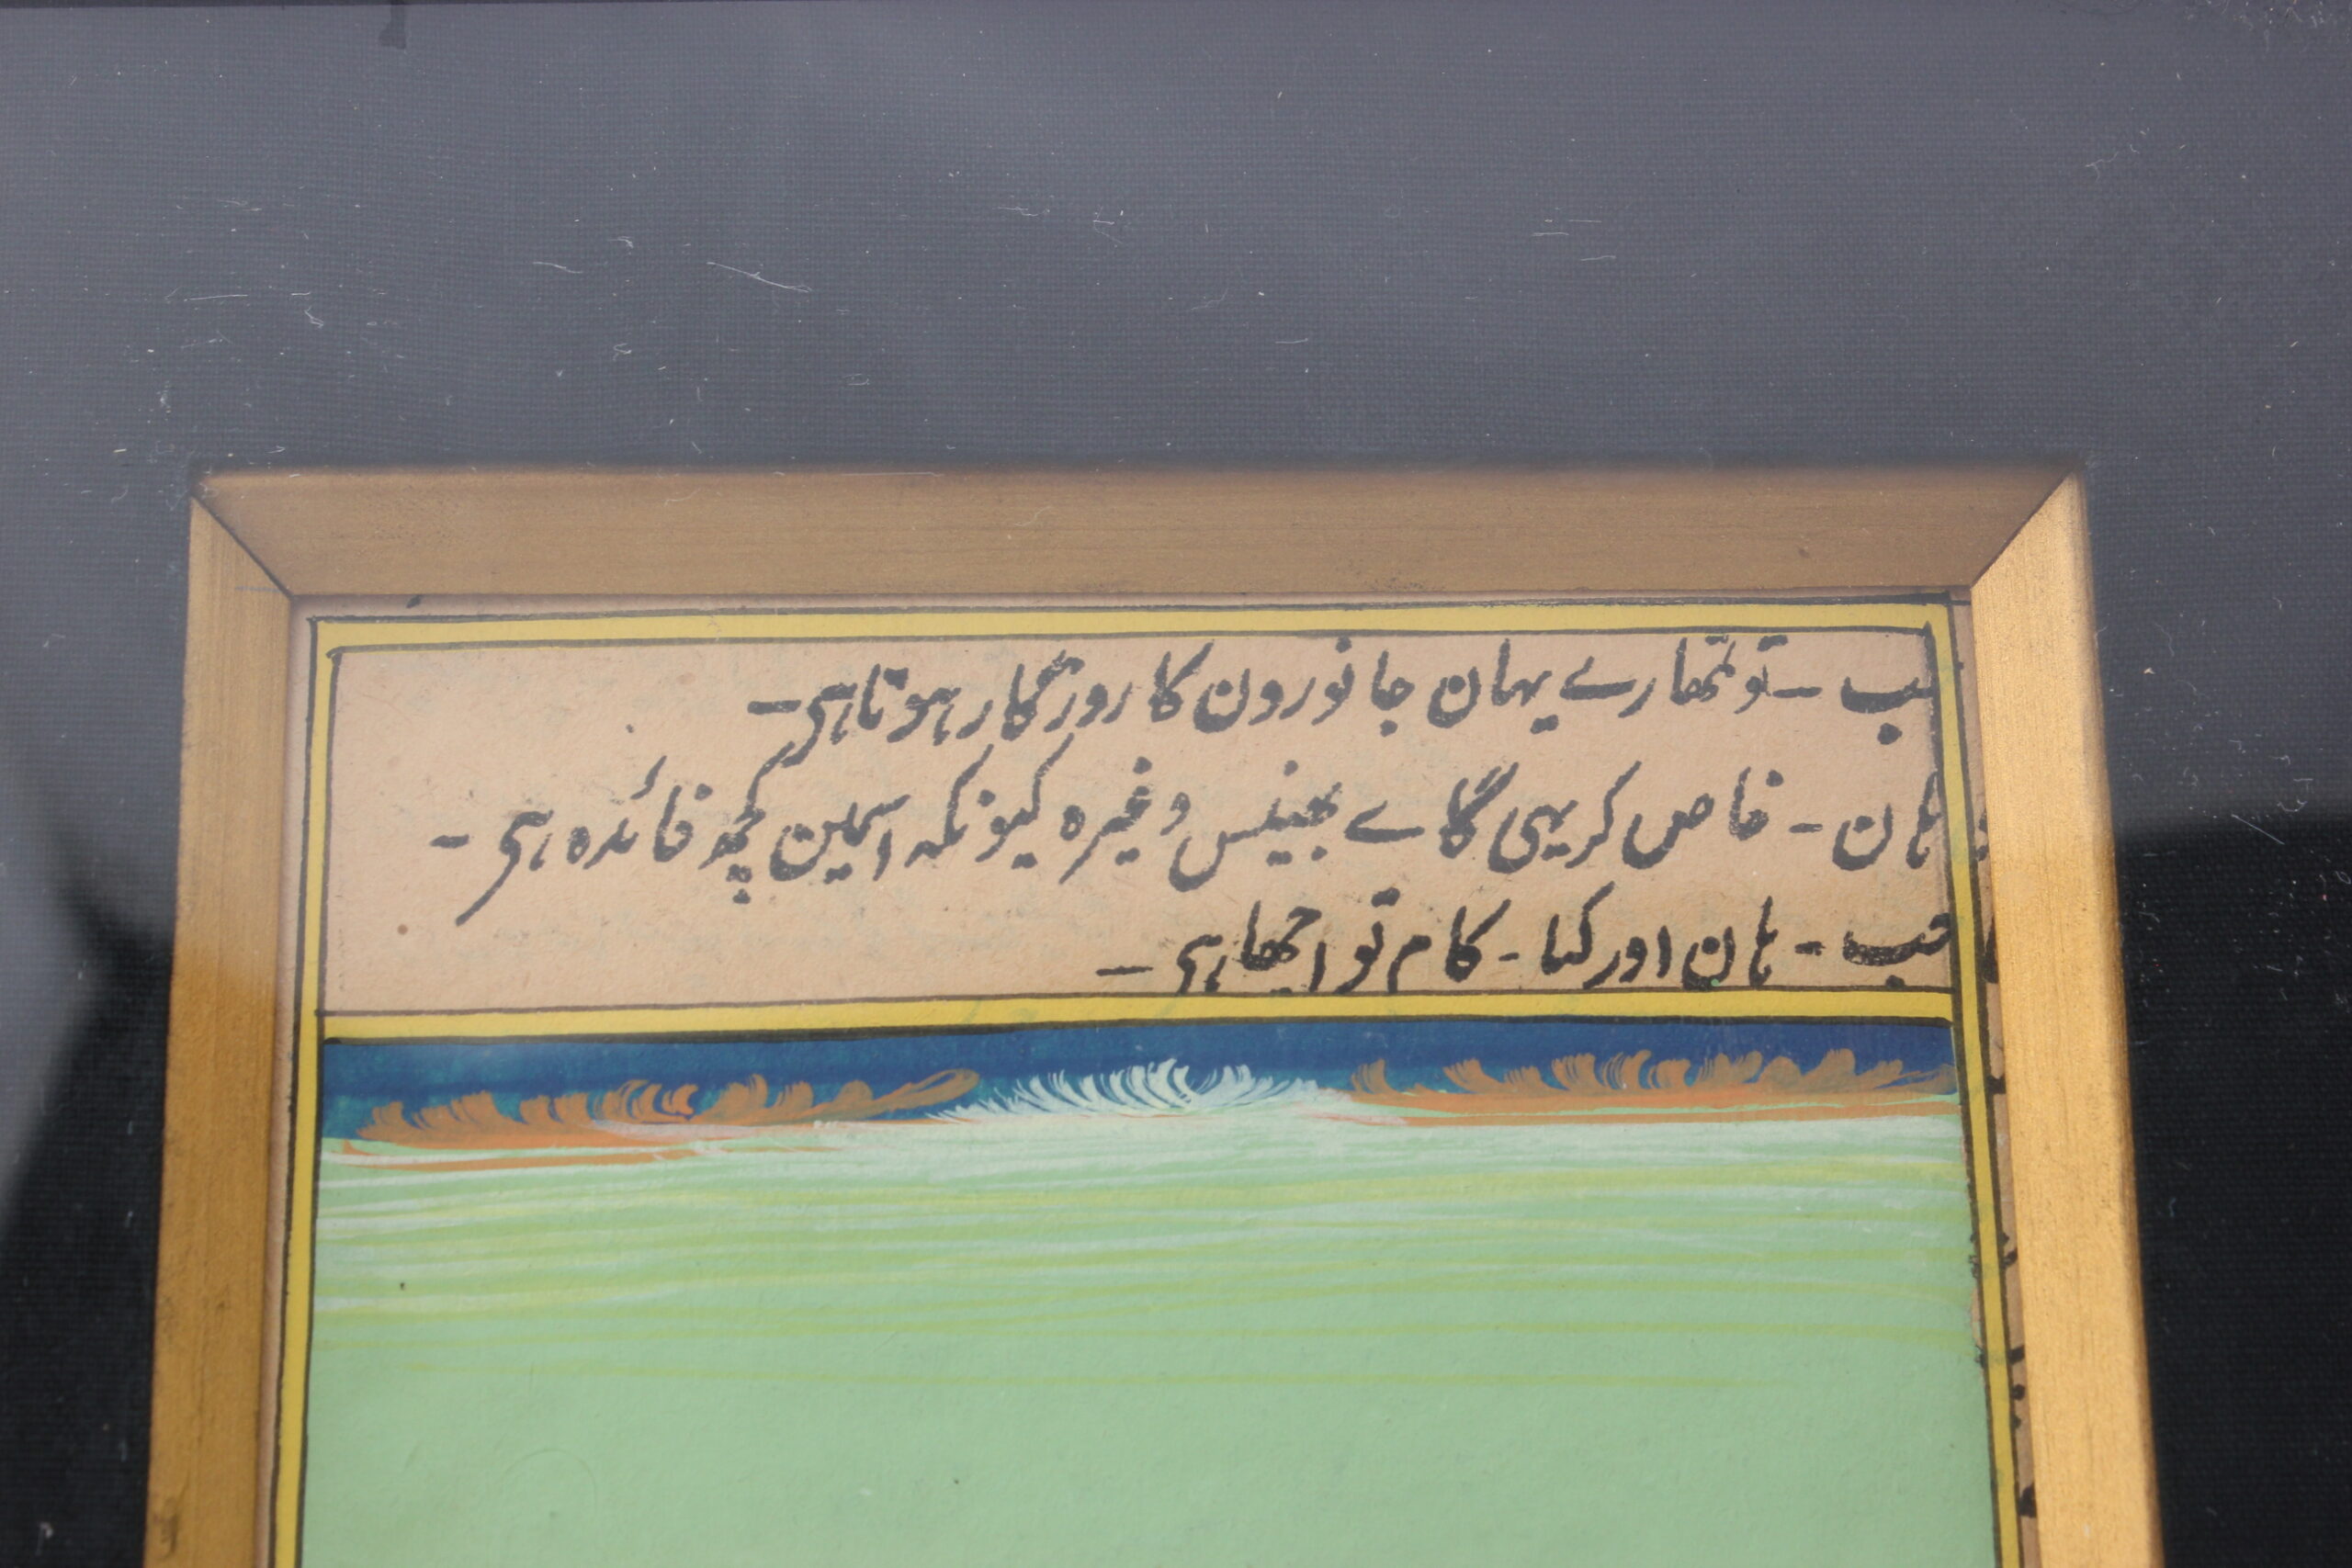 حب - تو تمھارے یہان جانورون کا روزگار ہوتا ہی -
ہان - خاص کر یہی گاے بھینس وغیرہ کیونکہ اسمین کچھ فائدہ ہی -
حب - ہان اور کیا - کام تو اچھا ہی -